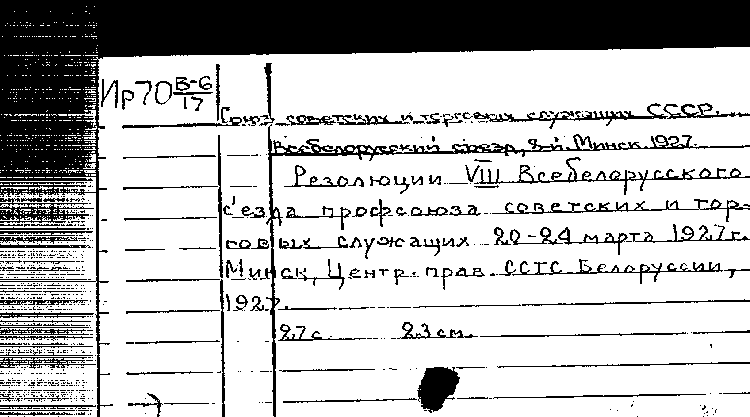 Ир70 В-6/17
Союз советских и торговых служащих СССР.
Всебелорусский съезд, 8-й. Минск. 1927.
Резолюции VIII Всебелорусского
с'езда профсоюза советских и тор-
говых служащих 20-24 марта 1927г.
Минск, Центр. прав. ССТС Белоруссии,
1927.
27с. 23см.